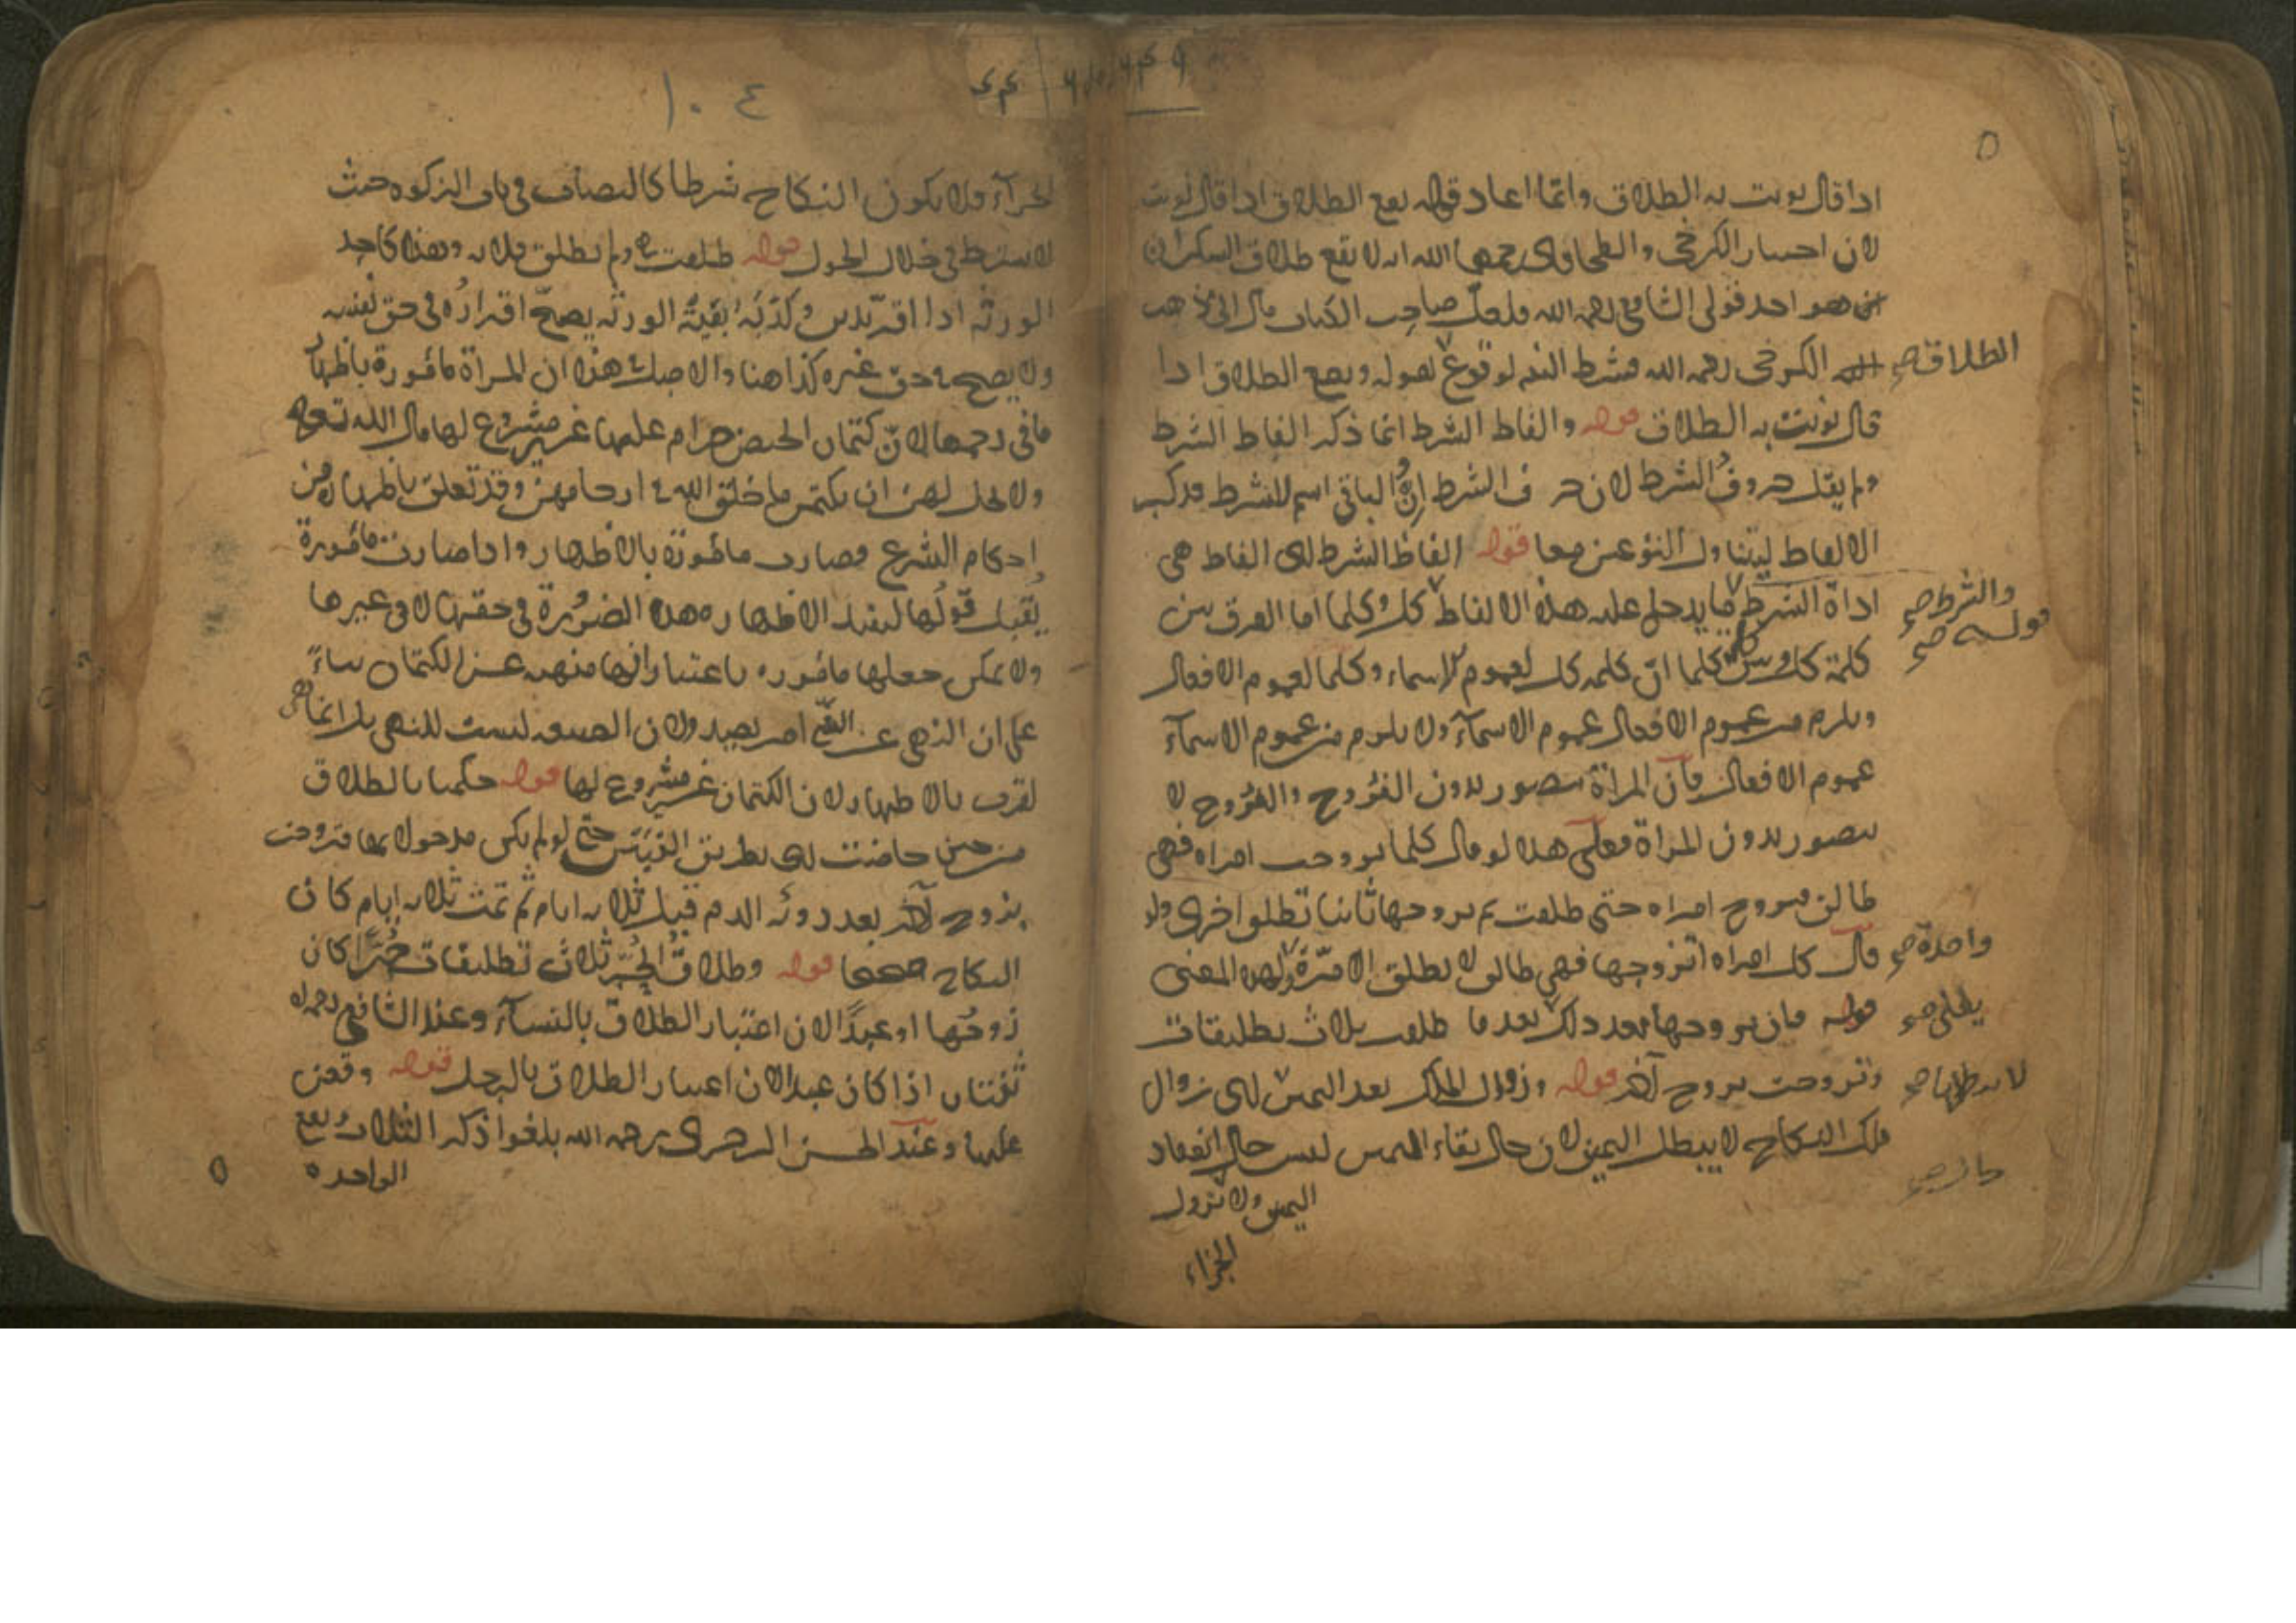 اذا قال نويت به الطلاق وانما اعاد قوله يقع الطلاق اذا قال نويت
لان اختيار الكرخي والطحاوي رحمهما الله انه لا يقع طلاق السكران
هو احد قولي الشافعي رحمه الله فلعل صاحب الكتاب مال الى مذهب
الكرخي رحمه الله فشرط النية لوقوع لقوله ويقع الطلاق اذا
الطلاق صح
قال نويت به الطلاق قوله والفاظ الشرط انما ذكر الفاظ الشرط
ولم يقل حروف الشرط لان حرف الشرط ان والباقي اسم للشرط فذكر
الالفاظ ليتناول النوعين معا قوله الفاظ الشرط اى الفاظ هي
اداة الشرط ما يدخل عليه هذه الالفاظ كل وكلما اما الفرق بين
والشرط صح
قوله صح
كلمة كل وبين كلما ان كلمة كل لعموم الاسماء وكلما لعموم الافعال
ويلزم من عموم الافعال عموم الاسماء ولا يلزم من عموم الاسماء
عموم الافعال فان المراة تتصور بدون التزوج والتزوج لا
يتصور بدون المراة فعلى هذا لو قال كلما تزوجت امراة فهي
طالق فتزوج امراة حتى طلقت ثم تزوجها ثانيا تطلق اخرى ولو
قال كل امراة اتزوجها فهي طالق لا تطلق الا مرة ولهذا المعنى
واحدة صح
قوله فان تزوجها بعد ذلك بعد ما طلقت ثلاث تطليقات
وتزوجت بزوج آخر قوله وزوال الملك بعد اليمين اى زوال
ملك النكاح لا يبطل اليمين لان حال بقاء اليمين ليس حال انعقاد
اليمين ولا نزول
الجزاء
١٠٤
الجزاء فلا يكون النكاح شرطا كالنصاب في باب الزكوة حيث
لا يشترط في خلال الحول قوله طلقت هي ولم تطلق فلانة وهذا كاحد
الورثة اذا اقر بدين وكذبه بقية الورثة يصح اقراره في حق نفسه
ولا يصح في حق غيره كذا هنا والاصل في هذا ان المراة مامورة باظهار
ما في رحمها لان كتمان الحيض حرام عليها غير مشروع لها قال الله تعالى
ولا يحل لهن ان يكتمن ما خلق الله في ارحامهن وقد تعلق باظهارهن
احكام الشرع فصارت مامورة بالاظهار واذا صارت مامورة
يقبل قولها ليفيد الاظهار وهذه الضرورة في حقها لا في غيرها
ولا يمكن جعلها مامورة باعتبار انها منهية عن الكتمان بناء
على ان النهي عن الشيء امر بضده ولان الصيغة ليست للنهي بل انما
تعرف بالاظهار لان الكتمان غير مشروع لها قوله حكمنا بالطلاق
من حين حاضت اى بطريق التبين حتى لو لم يكن مدخولا بها فتزوجت
بزوج آخر بعد رؤية الدم قبل ثلاثة ايام ثم تمت ثلاثة ايام كان
النكاح صحيحا قوله وطلاق الحرة ثلاث تطليقات حرا كان
زوجها او عبدا لان اعتبار الطلاق بالنساء وعند الشافعي رحمه الله
ثنتان اذا كان عبدا لان اعتبار الطلاق بالرجل قوله وقعن
عليها وعند الحسن البصري رحمه الله يلغوا ذكر الثلاث ويقع
الواحدة